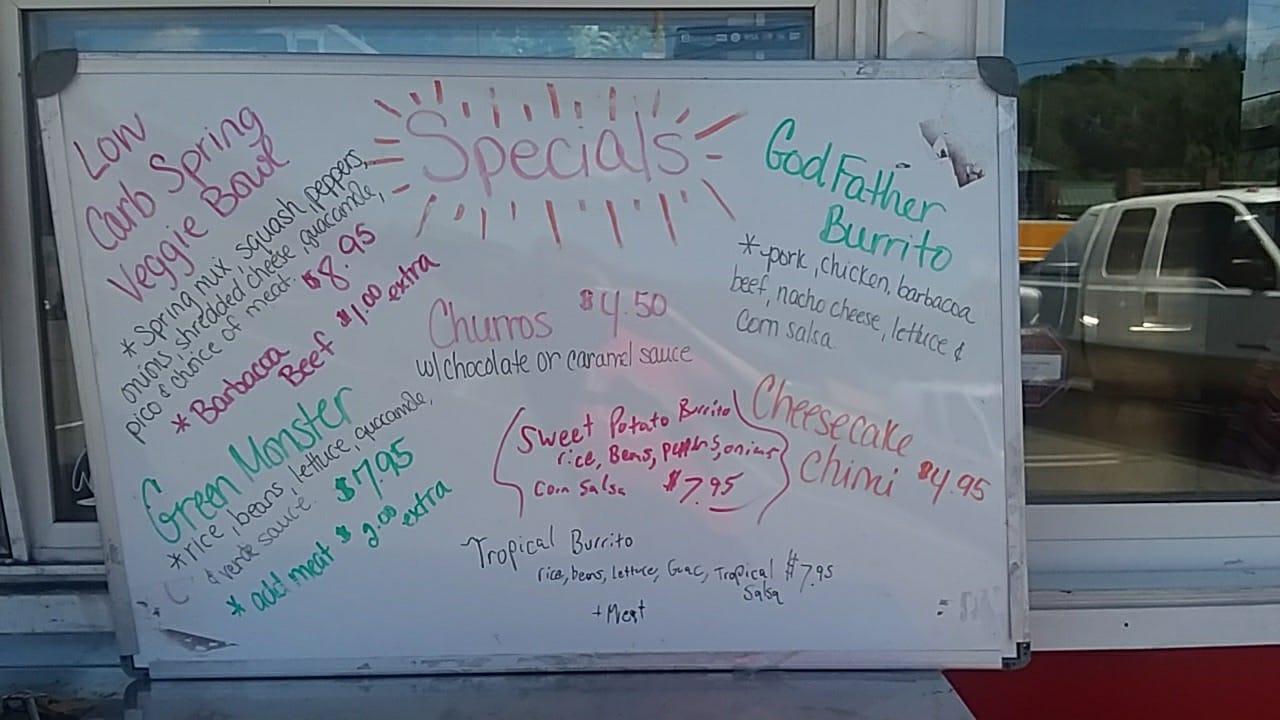 Specials
Low
Carb Spring
Veggie Bowl
* Spring mix, squash, peppers,
onions, shredded cheese, guacamole,
pico & choice of meat. $8.95
* Barbacoa
Beef $1.00
extra
Green Monster
* rice, beans, lettuce, guacamole,
& verde sauce. $7.95
* add meat $2.00
extra
Churros $4.50
w/chocolate or caramel sauce
Sweet Potato Burrito
rice, Beans, peppers, onions
Corn Salsa $7.95
Tropical Burrito
rice, beans, lettuce, Guac, Tropical $7.95
Salsa
+ Meat
GodFather
Burrito
* pork, chicken, barbacoa
beef, nacho cheese, lettuce &
corn salsa
Cheesecake
Chimi $4.95